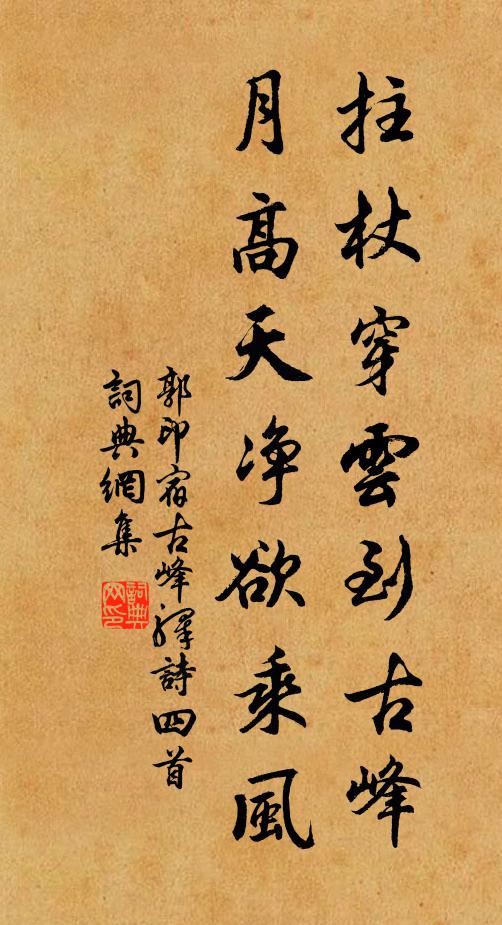 拄杖穿雲到古峰
月高天净欲乘風
郭印宿古峰驛詩四首
詞典網集
詞典网印